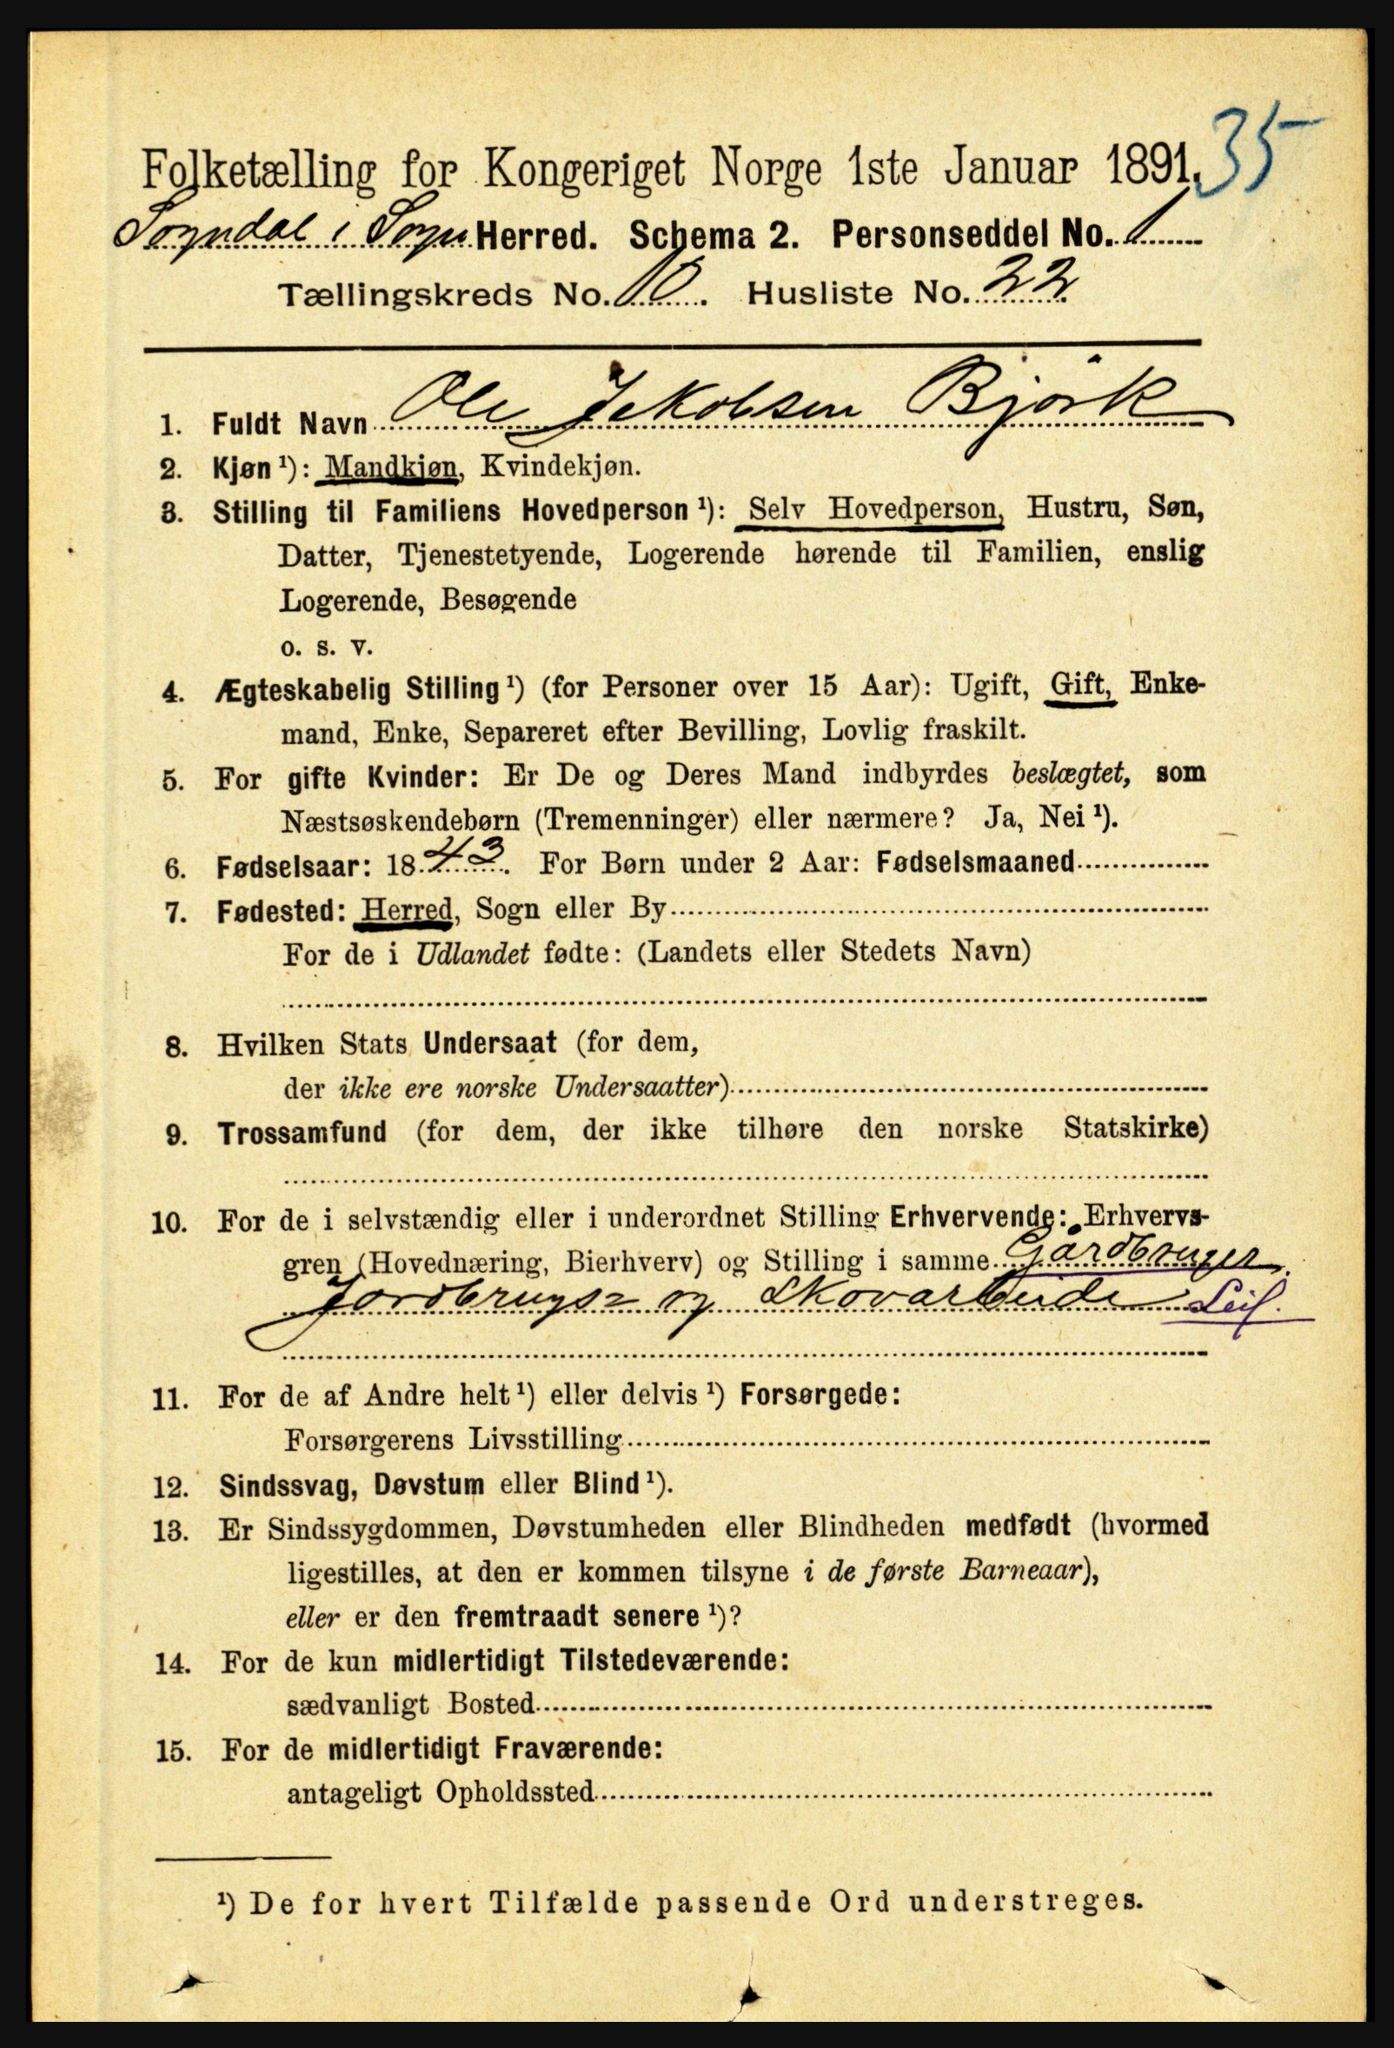 35
Folketælling for Kongeriget Norge 1ste Januar 1891.
Sogndal i Sogn Herred. Schema 2. Personseddel No. 1
Tællingskreds No. 10. Husliste No. 22.
1. Fuldt Navn Ole Jakobsen Bjørk
2. Kjøn ¹): Mandkjøn, Kvindekjøn.
3. Stilling til Familiens Hovedperson ¹): Selv Hovedperson, Hustru, Søn,
Datter, Tjenestetyende, Logerende hørende til Familien, enslig
Logerende, Besøgende
o. s. v.
4. Ægteskabelig Stilling ¹) (for Personer over 15 Aar): Ugift, Gift, Enke-
mand, Enke, Separeret efter Bevilling, Lovlig fraskilt.
5. For gifte Kvinder: Er De og Deres Mand indbyrdes beslægtet, som
Næstsøskendebørn (Tremenninger) eller nærmere? Ja, Nei ¹).
6. Fødselsaar: 1843. For Børn under 2 Aar: Fødselsmaaned
7. Fødested: Herred, Sogn eller By
For de i Udlandet fødte: (Landets eller Stedets Navn)
8. Hvilken Stats Undersaat (for dem,
der ikke ere norske Undersaatter)
9. Trossamfund (for dem, der ikke tilhøre den norske Statskirke)
10. For de i selvstændig eller i underordnet Stilling Erhvervende: Erhvervs-
gren (Hovednæring, Bierhverv) og Stilling i samme Gardbruger
Jordbrugs- og Skovarbeide
11. For de af Andre helt ¹) eller delvis ¹) Forsørgede:
Forsørgerens Livsstilling
12. Sindssvag, Døvstum eller Blind ¹).
13. Er Sindssygdommen, Døvstumheden eller Blindheden medfødt (hvormed
ligestilles, at den er kommen tilsyne i de første Barneaar),
eller er den fremtraadt senere ¹)?
14. For de kun midlertidigt Tilstedeværende:
sædvanligt Bosted
15. For de midlertidigt Fraværende:
antageligt Opholdssted
¹) De for hvert Tilfælde passende Ord understreges.